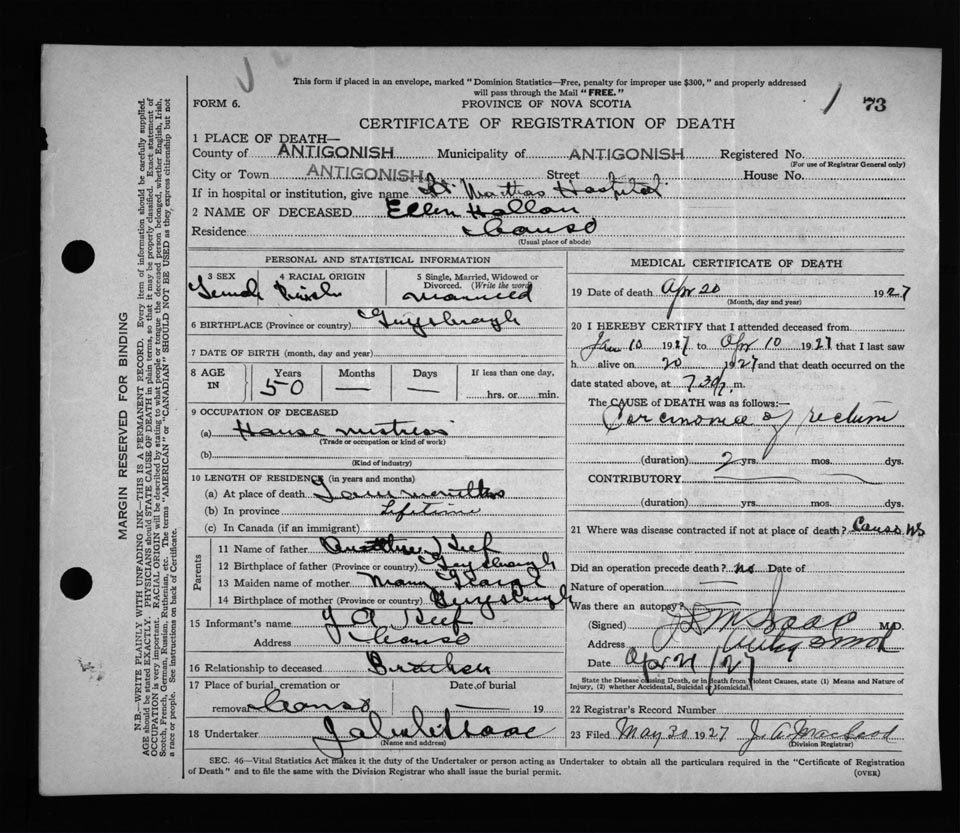 This form if placed in an envelope, marked "Dominion Statistics—Free, penalty for improper use $300," and properly addressed
will pass through the Mail "FREE."
FORM 6.
PROVINCE OF NOVA SCOTIA
73
CERTIFICATE OF REGISTRATION OF DEATH
1 PLACE OF DEATH—
County of ANTIGONISH Municipality of ANTIGONISH Registered No.
(For use of Registrar General only)
City or Town ANTIGONISH Street House No.
If in hospital or institution, give name St. Marthas Hospital
2 NAME OF DECEASED Ellen Hallan
Residence Canso
(Usual place of abode)
PERSONAL AND STATISTICAL INFORMATION
3 SEX 4 RACIAL ORIGIN 5 Single, Married, Widowed or Divorced. (Write the word)
Female Irish Married
6 BIRTHPLACE (Province or country) Guysborough
7 DATE OF BIRTH (month, day and year)
8 AGE IN Years Months Days If less than one day,
50 — — hrs. or min.
9 OCCUPATION OF DECEASED
(a) House mistress
(Trade or occupation or kind of work)
(b)
(Kind of industry)
10 LENGTH OF RESIDENCE (in years and months)
(a) At place of death months
(b) In province Lifetime
(c) In Canada (if an immigrant)
Parents
11 Name of father Keef
12 Birthplace of father (Province or country) Guysborough
13 Maiden name of mother Mary
14 Birthplace of mother (Province or country) Guysborough
15 Informant's name Keef
Address Canso
16 Relationship to deceased Brother
17 Place of burial, cremation or Date of burial
removal Canso — 19
18 Undertaker
(Name and address)
MEDICAL CERTIFICATE OF DEATH
19 Date of death Apr 20 1927
(Month, day and year)
20 I HEREBY CERTIFY that I attended deceased from
Jan 10 1927 to Apr 10 1927 that I last saw
h alive on 20 1927 and that death occurred on the
date stated above, at 7.30 m.
The CAUSE of DEATH was as follows:—
Carcinoma of rectum
(duration) 2 yrs. mos. dys.
CONTRIBUTORY
(duration) yrs. mos. dys.
21 Where was disease contracted if not at place of death? Canso NS
Did an operation precede death? no Date of
Nature of operation —
Was there an autopsy?
(Signed) M.D.
Address Antigonish
Date Apr 21/27
State the Disease causing Death, or in death from Violent Causes, state (1) Means and Nature of
Injury, (2) whether Accidental, Suicidal or Homicidal.
22 Registrar's Record Number
23 Filed May 30 1927 J. A. MacLeod
(Division Registrar)
SEC. 46—Vital Statistics Act makes it the duty of the Undertaker or person acting as Undertaker to obtain all the particulars required in the "Certificate of Registration
of Death" and to file the same with the Division Registrar who shall issue the burial permit.
(OVER)
MARGIN RESERVED FOR BINDING
N.B.—WRITE PLAINLY WITH UNFADING INK—THIS IS A PERMANENT RECORD. Every item of information should be carefully supplied.
AGE should be stated EXACTLY. PHYSICIANS should STATE CAUSE OF DEATH in plain terms, so that it may be properly classified. Exact statement of
OCCUPATION is very important. RACIAL ORIGIN will be described by stating to what people or tongue the deceased person belonged, whether English, Irish,
Scotch, French, German, Russian, Ruthenian, etc. The terms "AMERICAN" or "CANADIAN" SHOULD NOT BE USED as they express citizenship but not
a race or people. See instructions on back of Certificate.